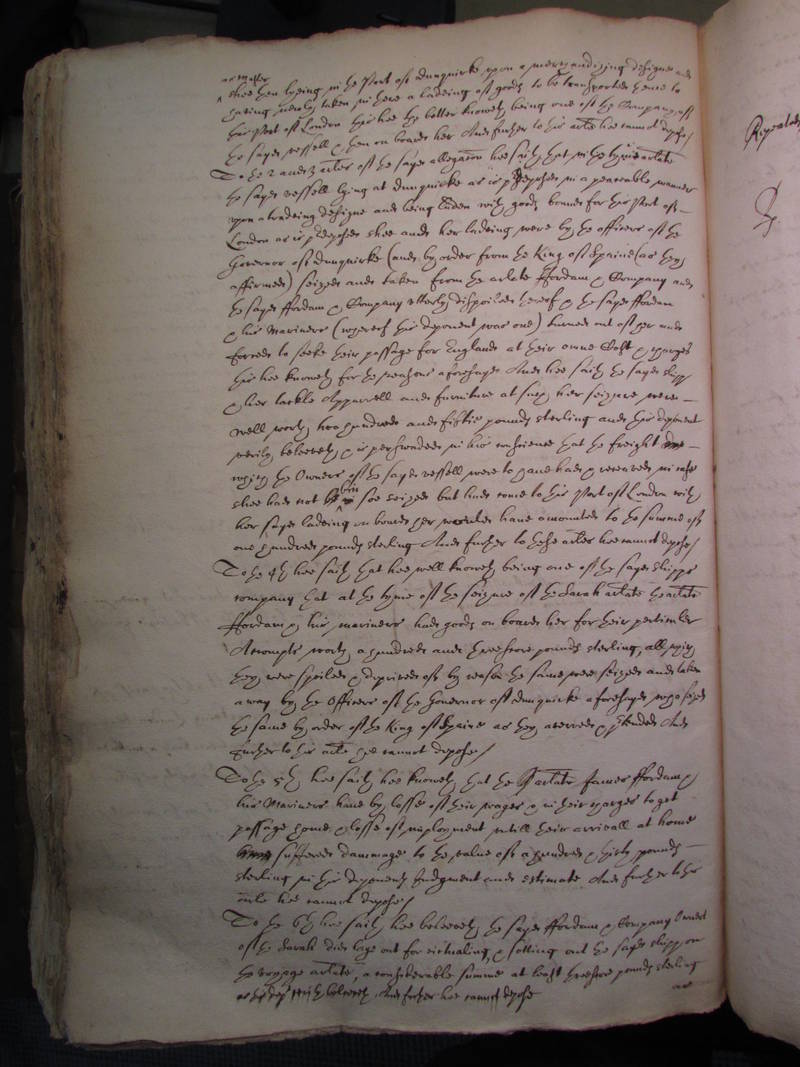 as master
shee then lyeing in the Port of dunquirke upon a merchandizing designe and
haveing newly taken in there a ladeing of goods to be transported thence to
this Port of London this hee the better knoweth being one of the Company of
the sayd vessell & then on board her And further to this article hee cannot depose/
To the 2 and 3 articles of the sayd allegation hee saith that in the tyme articulate
the sayd vessell lying at dunquirke as is predeposed in a peaceable manner
upon a tradeing designe and being laden with goods bound for this Port of
London as is predeposed shee and her ladeing were by the officers of the
Governor of dunquirke (and by order from the King of Spaine (as they
affirmed) seized and taken from the articulate ffordam & Company and
the sayd ffordam & Company utterly dispoiled thereof & the sayd ffordam
& his Mariners (whereof this deponent was one) turned out of her and
forced to seeke their passage for England at their owne Cost & charges
this hee knoweth for the reasons aforesayd And hee saith the sayd shipp
& her tackle Apparrell and furniture at such her seizure were
well worth two hundred and fiftie pounds sterling and this deponent
verily beleeveth & is perswaded in his conscience that the freight
which the Owners of the sayd vessell were to have had & received in case
shee had not bin soe seized but had come to this Port of London with
her sayd ladeing on board her would have amounted to the summe of
one hundred pounds sterling And further to these articles hee cannot depose/
To the 4th hee saith that hee well knoweth being one of the sayd shipps
company that at the tyme of the seizure of the Sarah articulate the articulate
ffordam & his mariners had goods on board her for their perticuler
Accompts worth a hundred and threescore pounds sterling, all which
they were spoiled & deprived of by reason the same were seized and taken
away by the Officers of the Governor of dunquirke aforesayd who seized
the same by order of the King of Spaine as they averred & pretended And
further to this article hee cannot depose/
To the 5th hee saith hee knoweth that the articulate James ffordam &
his Mariners have by losse of their wages & in their charges to get
passage home & losse of imployment untill their arrivall at home
suffered dammage to the value of a hundred & thirty pounds
sterling in this deponents Judgment and estimate And further to this
article hee cannot depose/
To the 6th hee saith hee beleeveth the sayd ffordam & Company Owners
of the Sarah did laye out for victualing, & setting out the sayd shipp on
the voyage articulate, a considerable summe at least threescore pounds sterling
as this deponent beleeveth And further hee cannot depose
as